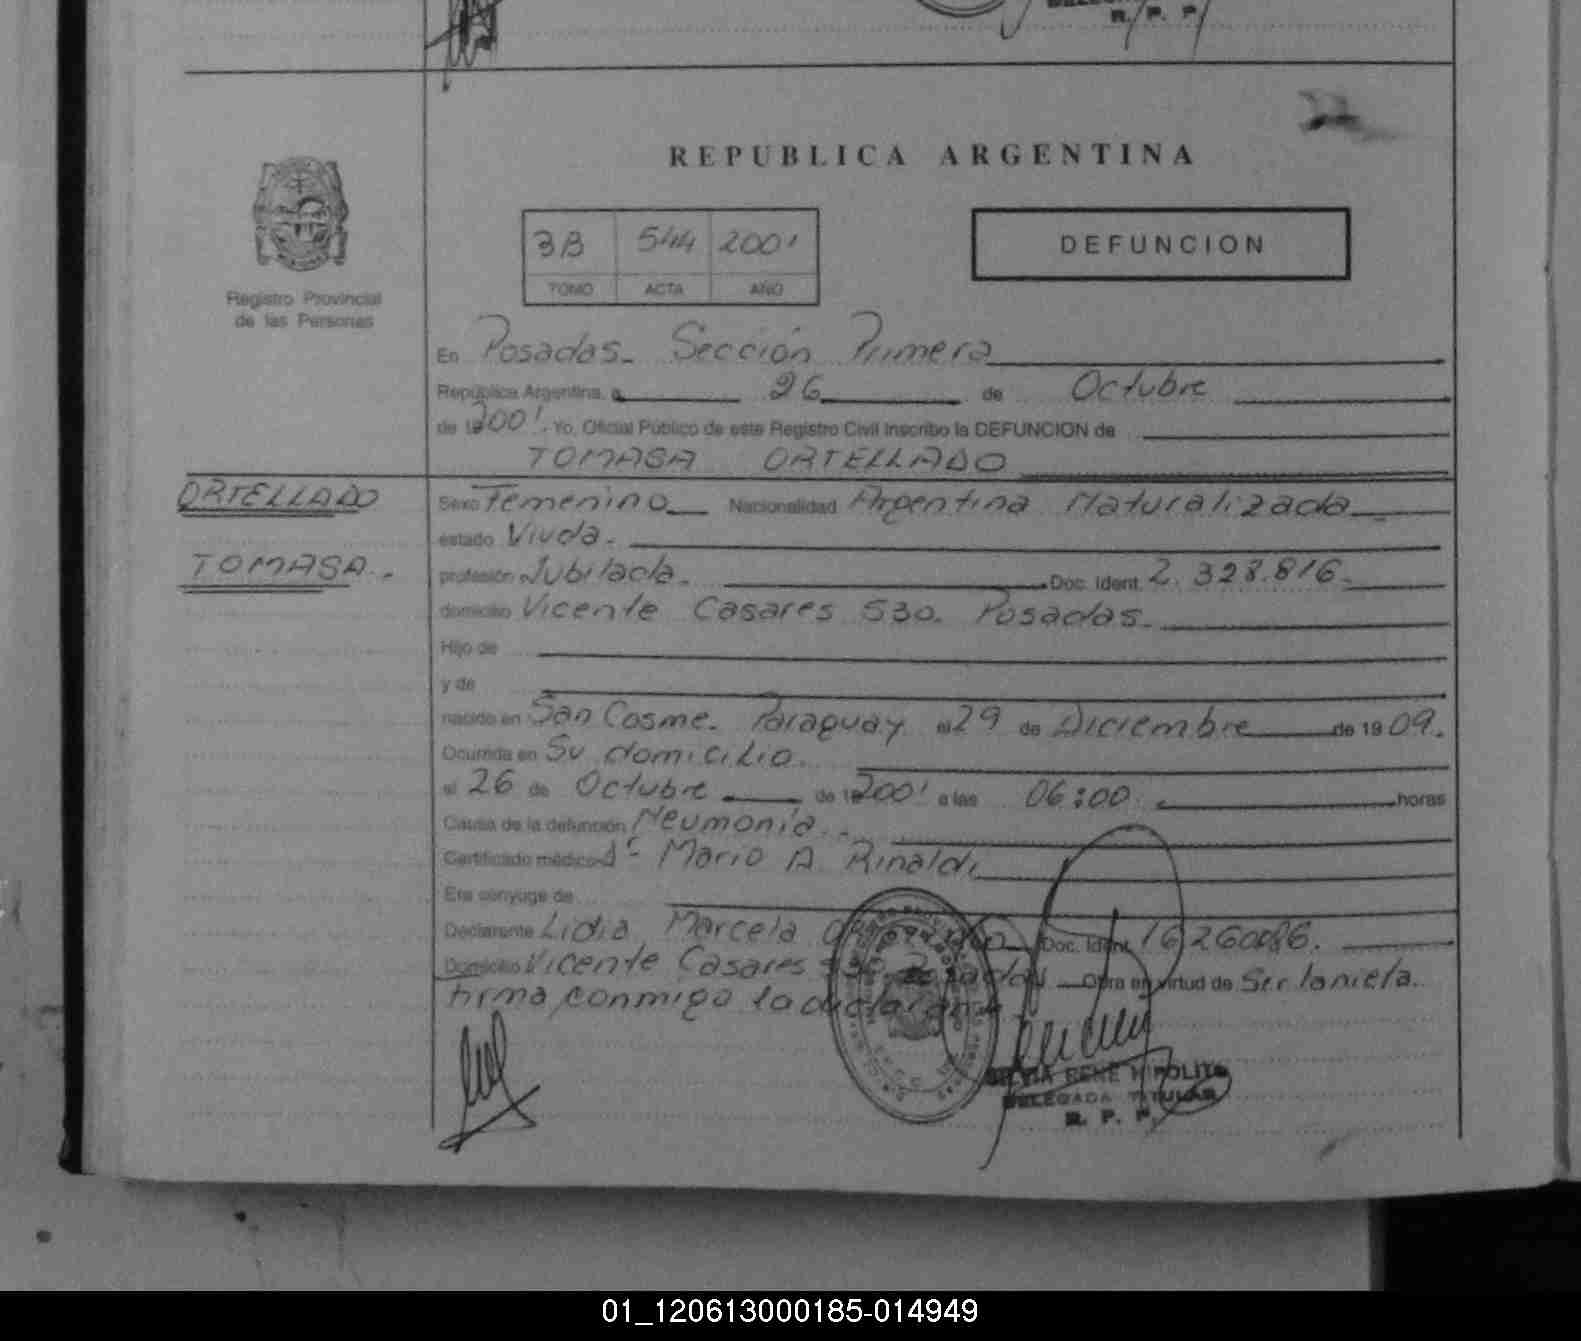 R. P. P.
REPUBLICA ARGENTINA
3B 544 2001
TOMO ACTA AÑO
DEFUNCION
Registro Provincial
de las Personas
En Posadas. Sección Primera
República Argentina, a 26 de Octubre
de 2001. Yo, Oficial Público de este Registro Civil inscribo la DEFUNCION de
TOMASA ORTELLADO
ORTELLADO
TOMASA.
Sexo Femenino Nacionalidad Argentina Naturalizada
estado Viuda.
profesión Jubilada. Doc. Ident. 2.328.816.
domicilio Vicente Casares 530. Posadas.
Hijo de
y de
nacido en San Cosme. Paraguay el 29 de Diciembre de 1909.
Ocurrida en Su domicilio.
el 26 de Octubre de 2001 a las 06:00 horas
Causa de la defunción Neumonía.
Certificado médico Dr. Mario A. Rinaldi
Era cónyuge de
Declarante Lidia Marcela Doc. Ident. 16260086.
Domicilio Vicente Casares 530 Posadas Obra en virtud de Ser la nieta.
firma conmigo la declarante
SILVIA RENE HIPOLITO
DELEGADA TITULAR
R. P. P.
01_120613000185-014949